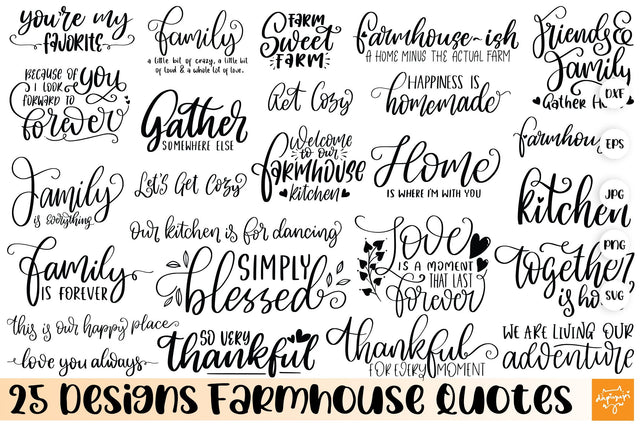 you're my
FAVORITE
family
a little bit of crazy, a little bit
of loud & a whole lot of love.
FARM
Sweet
FARM
farmhouse-ish
A HOME MINUS THE ACTUAL FARM
friends &
Family
Gather H
DXF
BECAUSE OF
you
I LOOK
FORWARD TO
forever
Gather
SOMEWHERE ELSE
Get Cozy
HAPPINESS IS
homemade
Welcome
to our
FARMHOUSE
kitchen
farmhou
EPS
Family
is everything
Let's Get Cozy
Home
IS WHERE I'M WITH YOU
JPG
kitchen
Our kitchen is for dancing
family
IS FOREVER
SIMPLY
blessed
Love
IS A MOMENT
THAT LAST
forever
PNG
together
is ho
SVG
this is our happy place
love you always
SO VERY
thankful
thankful
FOR EVERY MOMENT
WE ARE LIVING OUR
adventure
25 Designs Farmhouse Quotes
dapiyupi